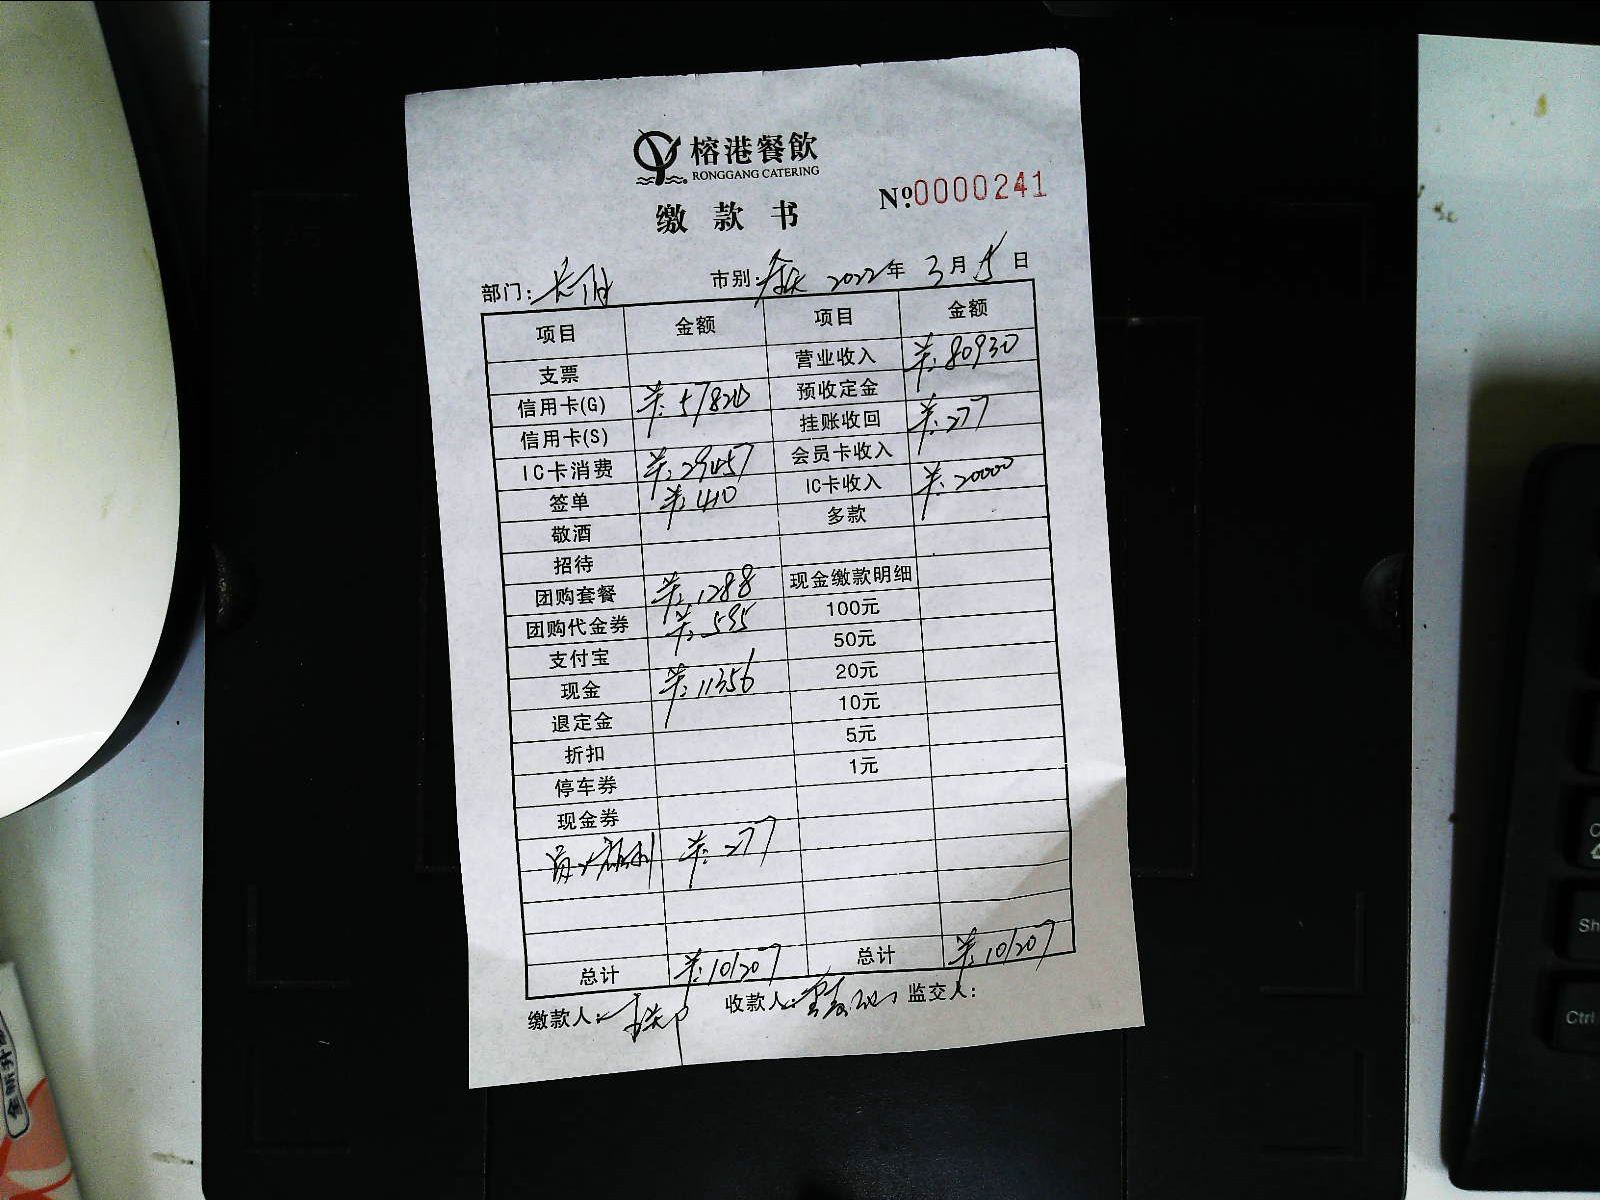 榕港餐飲
RONGGANG CATERING
缴款书
№:0000241
部门: 市别: 全天 2022年 3月 5日
项目 金额 项目 金额
支票 营业收入 羊:80930
信用卡(G) 羊:57824 预收定金
信用卡(S) 挂账收回 羊:277
IC卡消费 羊:29457 会员卡收入
签单 羊:410 IC卡收入 羊:20000
敬酒 多款
招待
团购套餐 羊:1288 现金缴款明细
团购代金券 羊:595 100元
支付宝 50元
现金 羊:11356 20元
退定金 10元
折扣 5元
停车券 1元
现金券
员工福利 羊:277
总计 羊:101207 总计 羊:101207
缴款人: 收款人: 监交人:
Ctrl